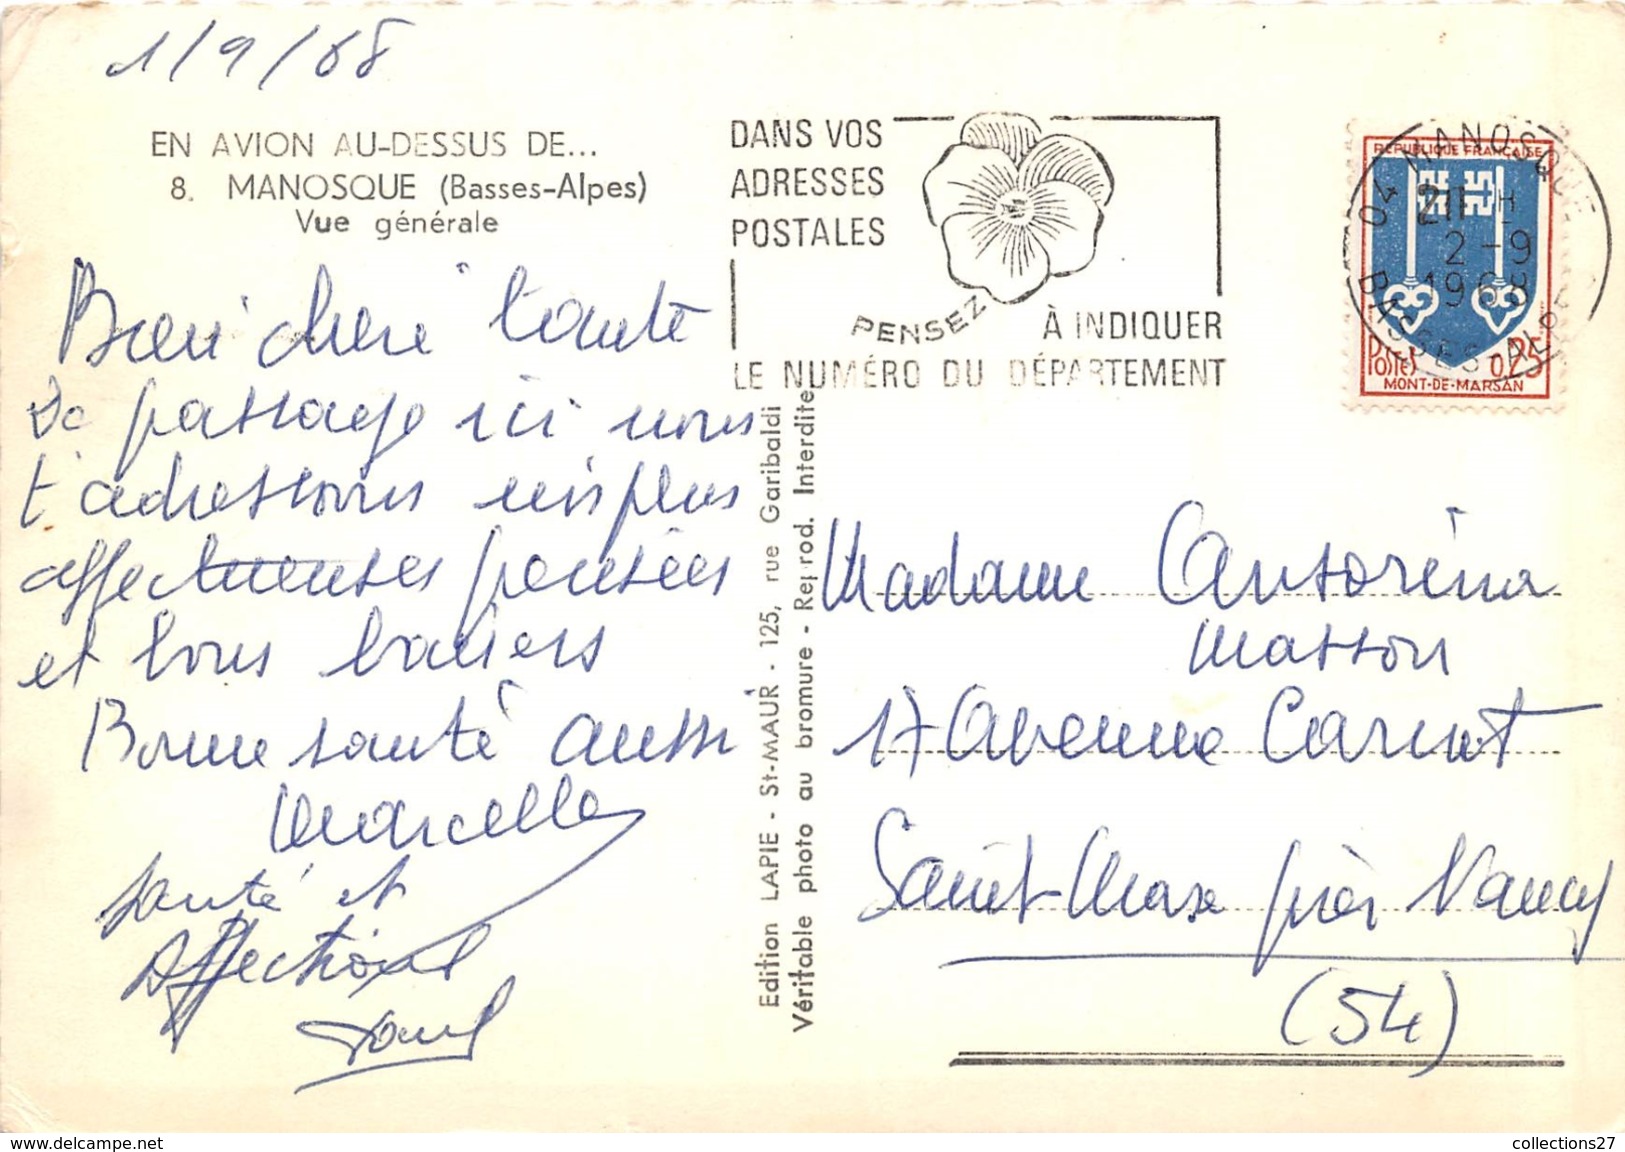 1/9/68
EN AVION AU-DESSUS DE...
8. MANOSQUE (Basses-Alpes)
Vue générale
Bien chère tante
De passage ici nous
t'adressons nos plus
affectueuses pensées
et bons baisers
Bonne santé aussi
Marcelle
santé et
Affection
Edition LAPIE - St-MAUR - 125, rue Garibaldi
Véritable photo au bromure - Reprod. Interdite
DANS VOS
ADRESSES
POSTALES
PENSEZ
À INDIQUER
LE NUMÉRO DU DÉPARTEMENT
04 MANOSQUE
21 H
2 - 9
1968
BASSES-ALPES
REPUBLIQUE FRANÇAISE
POSTES
0,25
MONT-DE-MARSAN
Madame
Masson
17 Avenue Carnot
Saint-Max près Nancy
(54)
www.delcampe.net
collections27